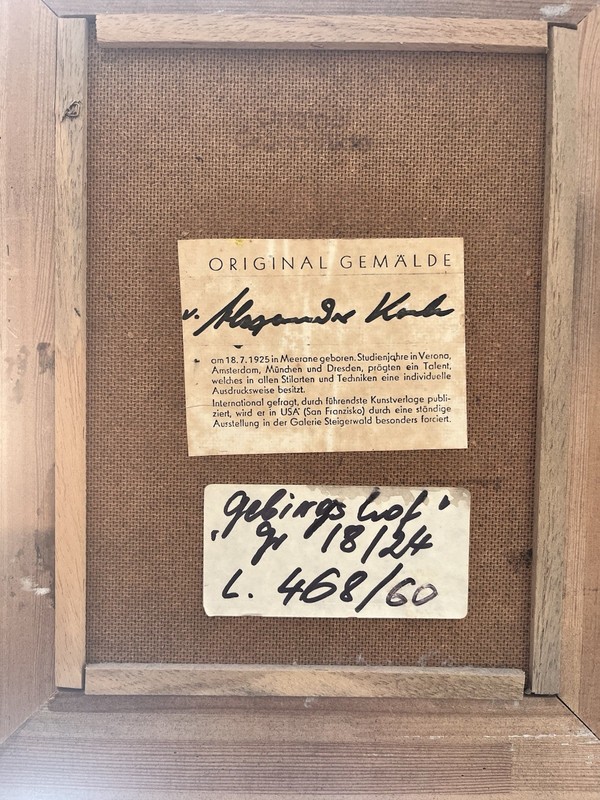 ORIGINAL GEMÄLDE
v. Alexander Koch
am 18.7.1925 in Meerane geboren. Studienjahre in Verona,
Amsterdam, München und Dresden, prägten ein Talent,
welches in allen Stilarten und Techniken eine individuelle
Ausdrucksweise besitzt.
International gefragt, durch führendste Kunstverlage publi-
ziert, wird er in USA (San Franzisko) durch eine ständige
Ausstellung in der Galerie Steigerwald besonders forciert.
gebirgshof"
gr 18/24
L. 468/60